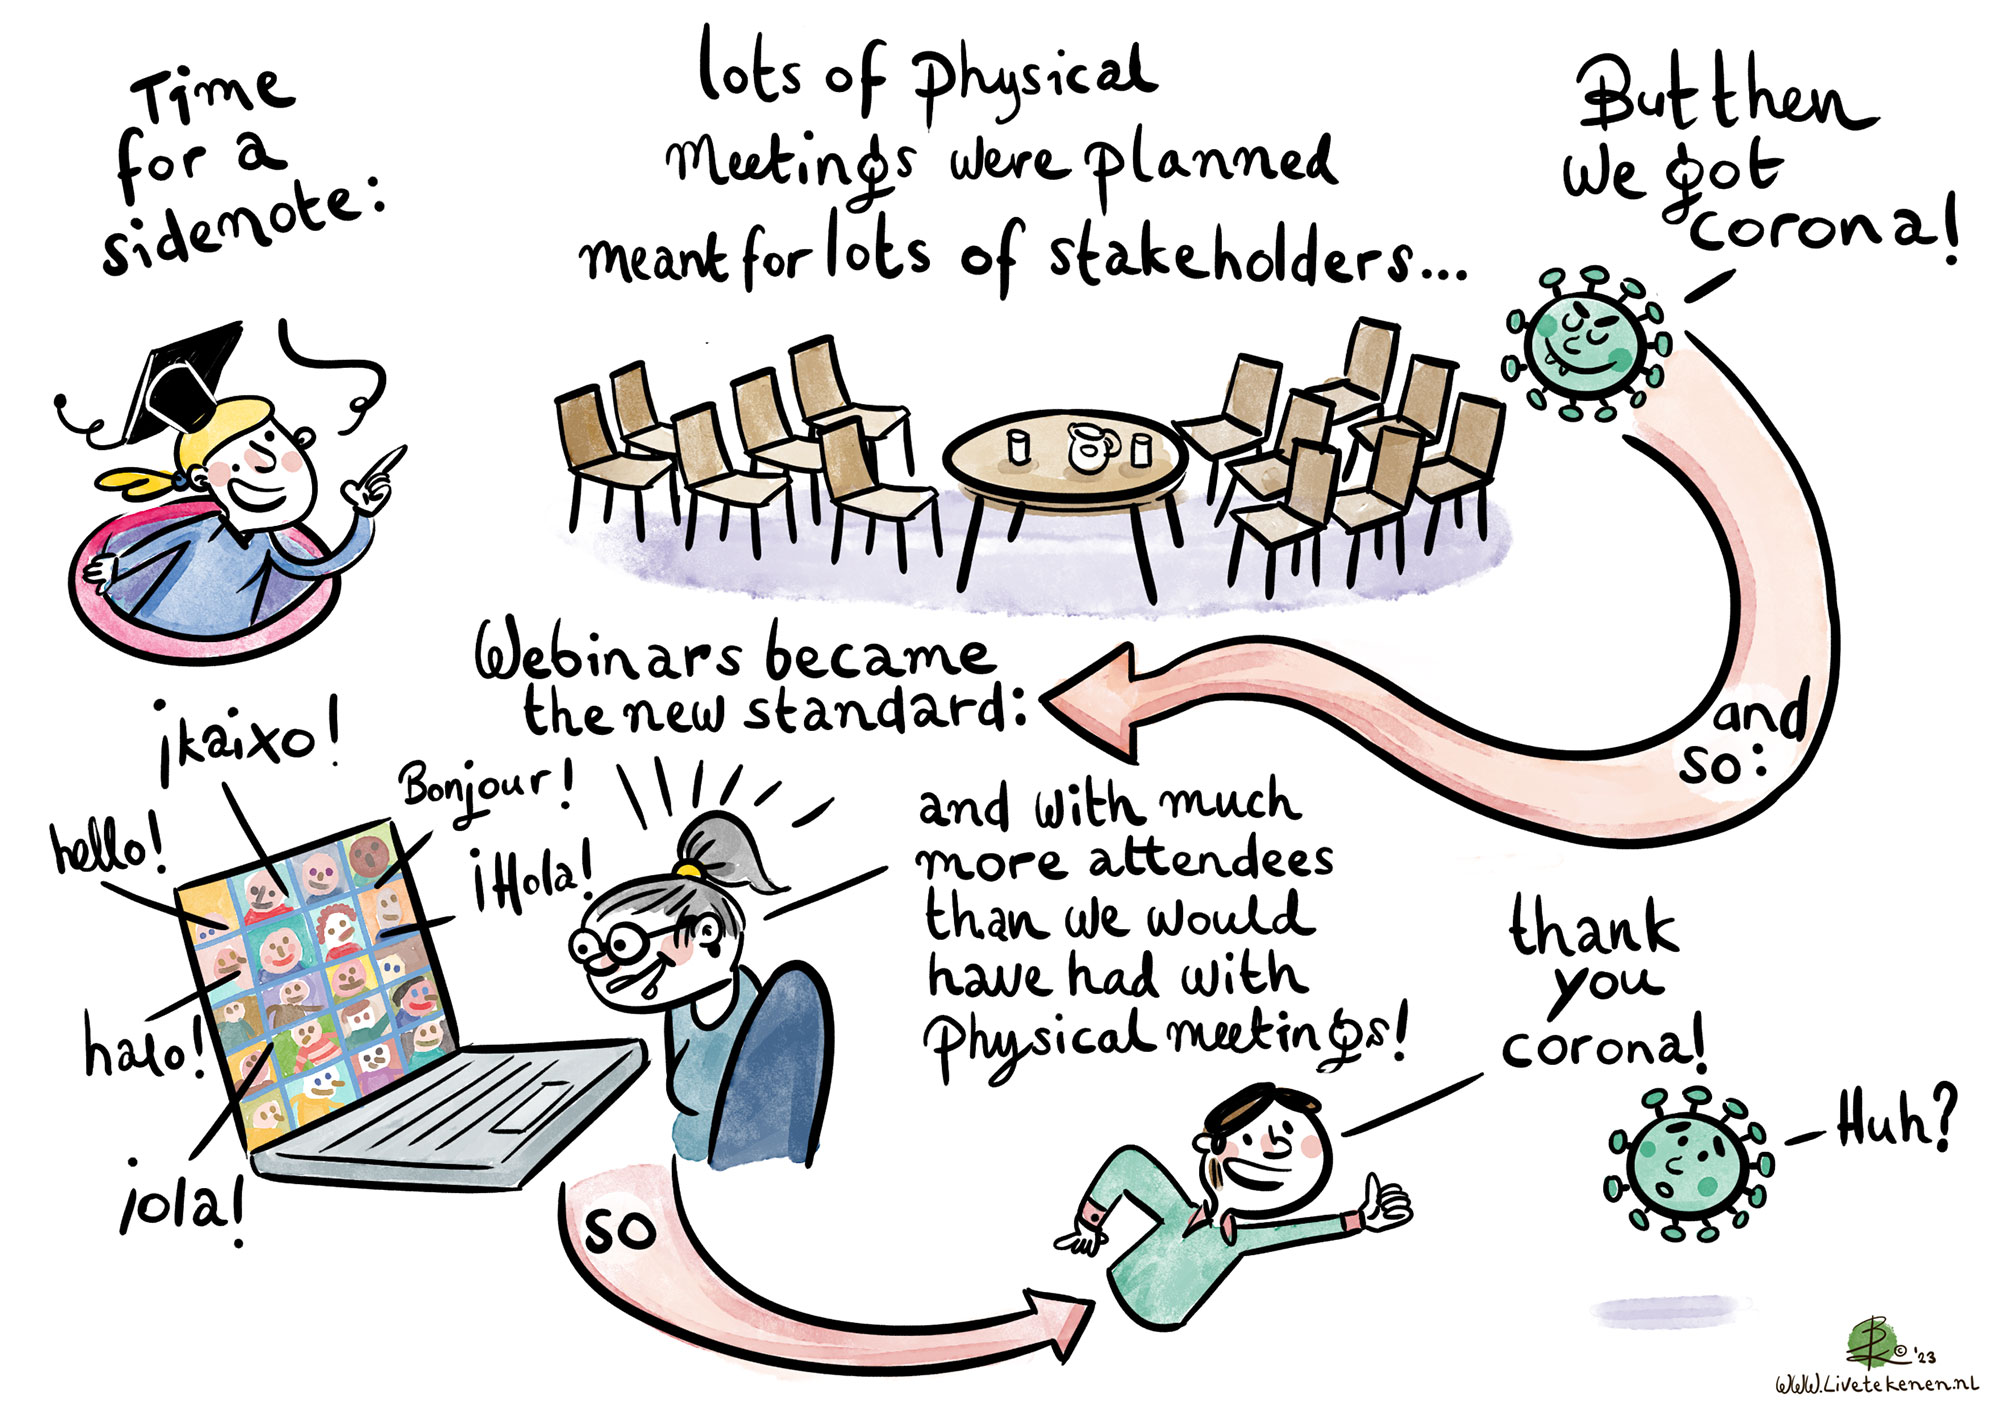 Time
for a
sidenote:
lots of physical
meetings were planned
meant for lots of stakeholders...
But then
we got
corona!
and
so:
Webinars became
the new standard:
¡kaixo!
Bonjour!
hello!
¡Hola!
halo!
¡ola!
and with much
more attendees
than we would
have had with
physical meetings!
so
thank
you
corona!
Huh?
© '23
www.Livetekenen.nl